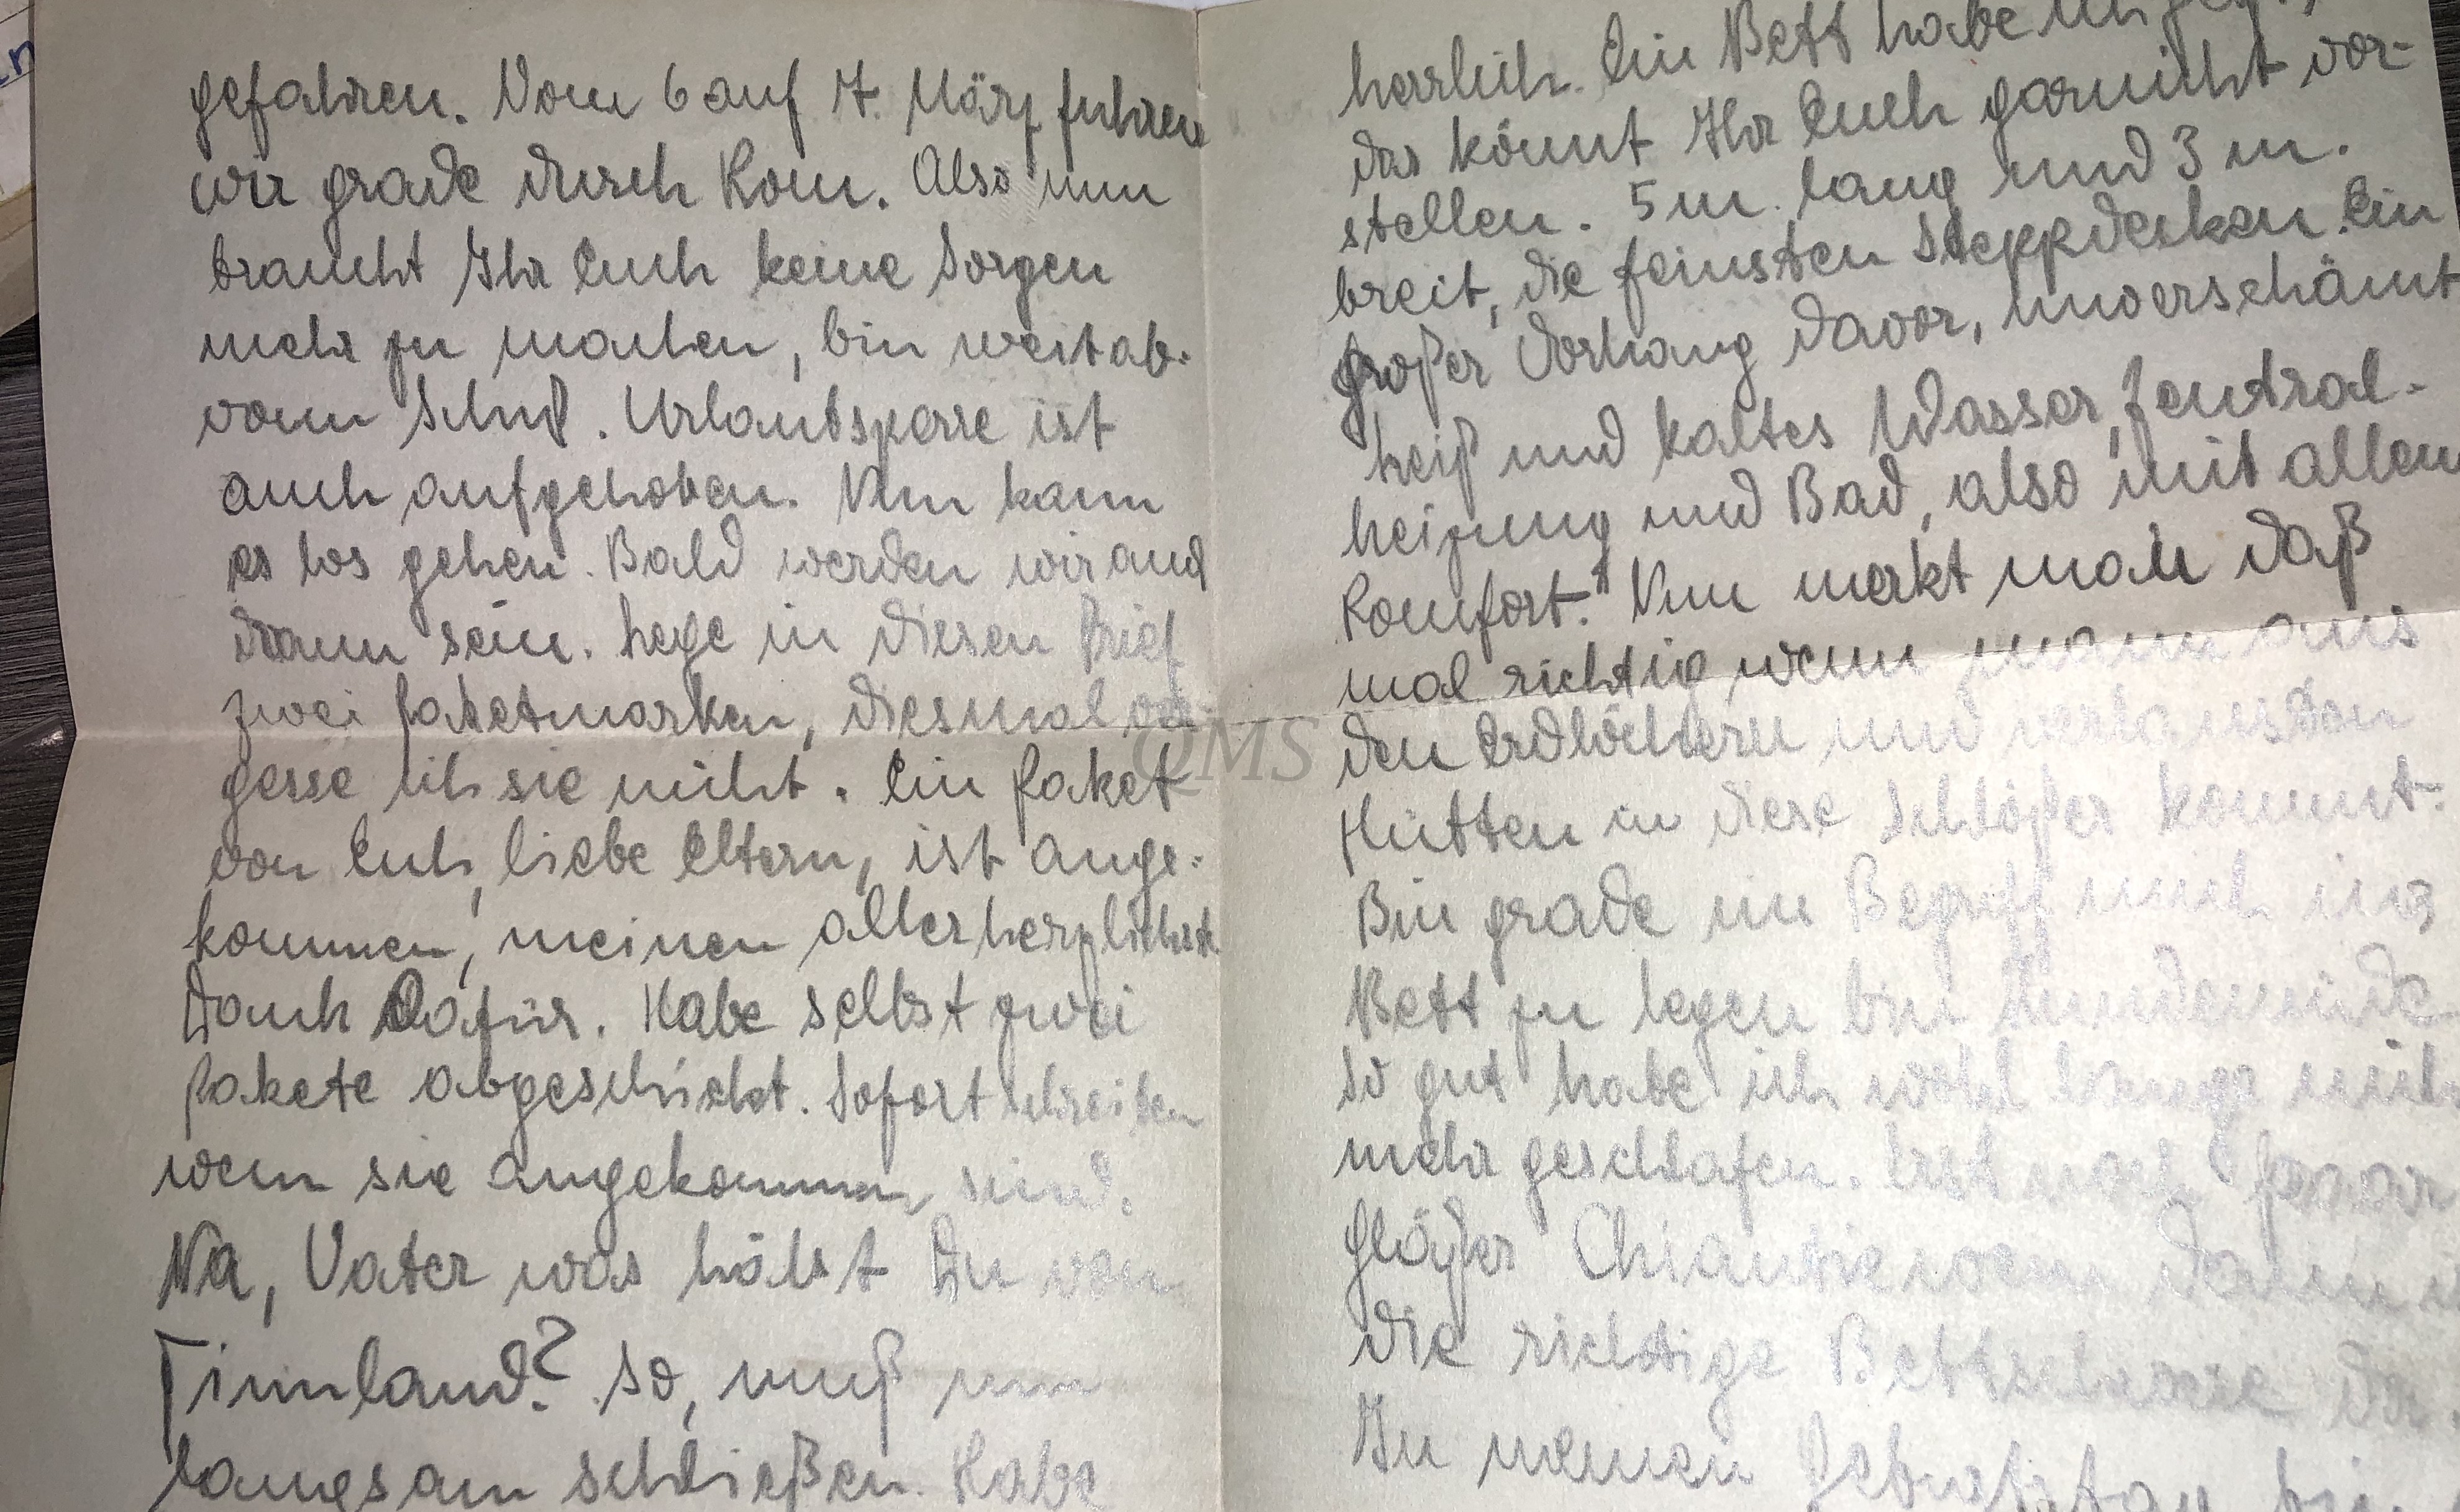 gefahren. Vom 6 auf 7. März fuhren
wir grade durch Rom. Also nun
braucht Ihr Euch keine Sorgen
mehr zu machen, bin weitab.
vom Schuß. Urlaubsperre ist
auch aufgehoben. Nun kann
es los gehen. Bald werden wir auch
dran sein. Lege in diesen Brief
zwei Paketmarken, diesmal ver-
gesse ich sie nicht. Ein Paket
von Euch, liebe Eltern, ist ange-
kommen, meinen allerherzlichst.
Dank Dafür. Habe selbst zwei
Pakete abgeschickt. Sofort schreiben
wenn sie angekommen sind.
Na, Vater was hälst Du von
Finnland? So, muß nun
langsam schließen. Habe
herrlich. Ein Bett habe ich
das könnt Ihr Euch garnicht vor-
stellen. 5 m. lang und 3 m.
breit, die feinsten Steppdecken. Ein
großer Vorhang davor, unverschämt
heiß und kaltes Wasser, Zentral-
heizung und Bad, also mit allem
Komfort." Nun merkt man daß
mal richtig wenn mann aus
den Erdlöchern und verlausten
Hütten in diese Schlößer kommt.
Bin grade im Begriff mich ins
Bett zu legen bin Hundemüde.
So gut habe ich wohl lange nicht
mehr geschlafen. Erst noch paar
Gläßer Chiantiewein dann
die richtige Bettschwere da.
Zu meinen Geburtstag
QMS